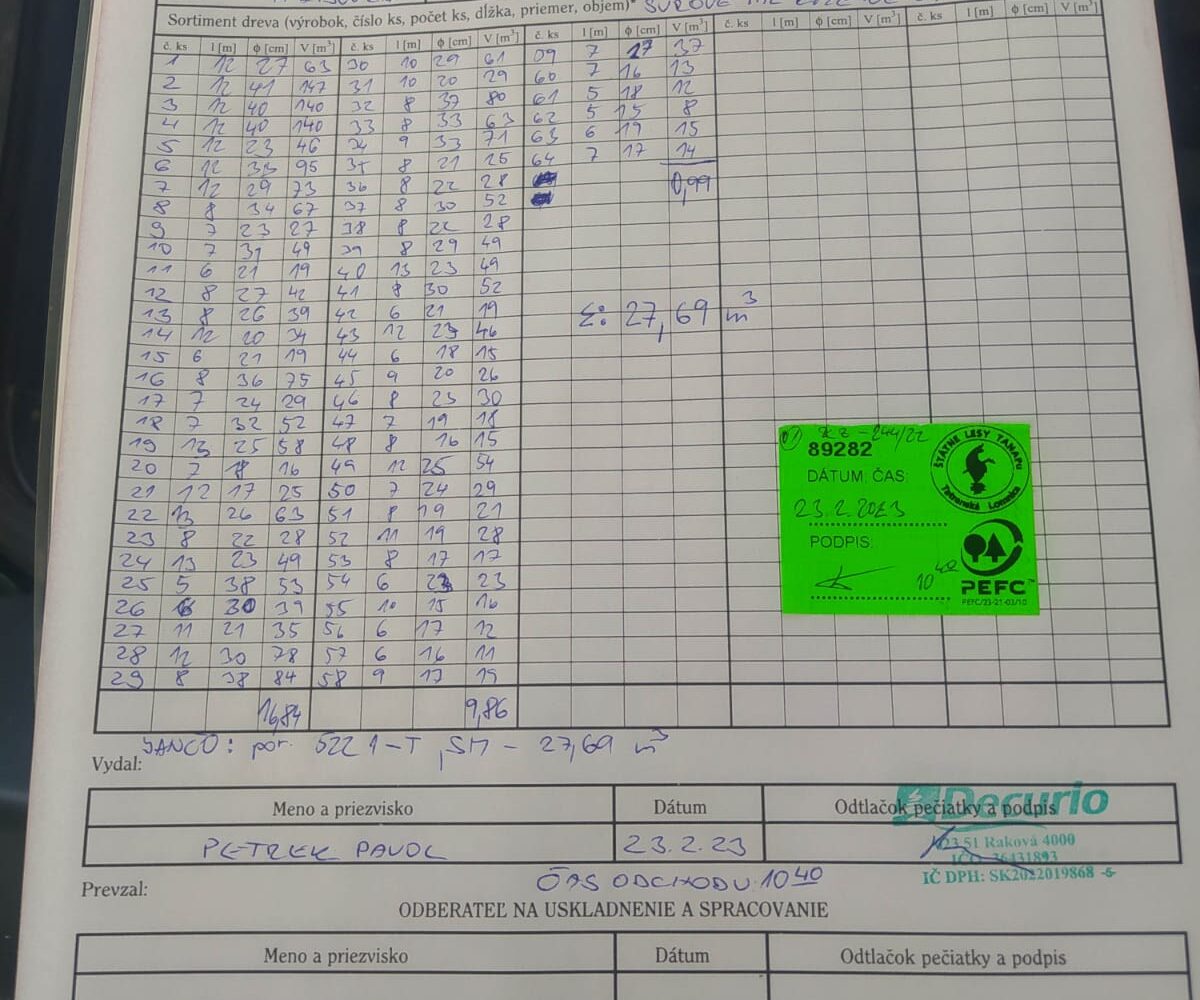 Sortiment dreva (výrobok, číslo ks, počet ks, dĺžka, priemer, objem)*
č. ks l [m] ϕ [cm] V [m³] č. ks l [m] ϕ [cm] V [m³] č. ks l [m] ϕ [cm] V [m³] č. ks l [m] ϕ [cm] V [m³] č. ks l [m] ϕ [cm] V [m³]
1 12 27 63 30 10 29 61 7 17 37
2 12 41 147 31 10 20 29 60 7 16 13
3 12 40 140 32 8 37 80 61 5 18 12
4 12 40 140 33 8 33 63 62 5 15 8
5 12 23 46 34 9 33 71 63 6 19 15
6 12 33 95 35 8 21 25 64 7 17 14
7 12 29 73 36 8 22 28 0,99
8 8 34 67 37 8 30 52
9 7 23 27 38 8 22 28
10 7 31 49 39 8 29 49
11 6 21 19 40 13 23 49
12 8 27 42 41 8 30 52
13 8 26 39 42 6 21 19 Σ: 27,69 m³
14 12 20 34 43 12 23 46
15 6 21 19 44 6 18 15
16 8 36 75 45 9 20 26
17 7 24 29 46 8 23 30
18 7 32 52 47 7 19 18
19 13 25 58 48 8 16 15
20 7 18 16 49 12 25 54
21 12 17 25 50 7 24 29
22 13 26 63 51 8 19 21
23 8 22 28 52 11 19 28
24 13 23 49 53 8 17 17
25 5 38 53 54 6 23 23
26 6 30 39 55 10 15 16
27 11 21 35 56 6 17 12
28 12 30 78 57 6 16 11
29 8 38 84 58 9 17 19
16,84 9,86
89282
DÁTUM, ČAS:
23.2.2023
PODPIS:
10 40
ŠTÁTNE LESY TANAPU
Tatranská Lomnica
PEFC™
PEFC/23-21-03/10
JANČO: por. 522 1-T, SM - 27,69 m³
Vydal:
Meno a priezvisko Dátum Odtlačok pečiatky a podpis
PETREK PAVOL 23.2.23
Decurio
023 51 Raková 4000
IČO 36431893
IČ DPH: SK2022019868 -5-
Prevzal:
ČAS ODCHODU 10 40
ODBERATEĽ NA USKLADNENIE A SPRACOVANIE
Meno a priezvisko Dátum Odtlačok pečiatky a podpis